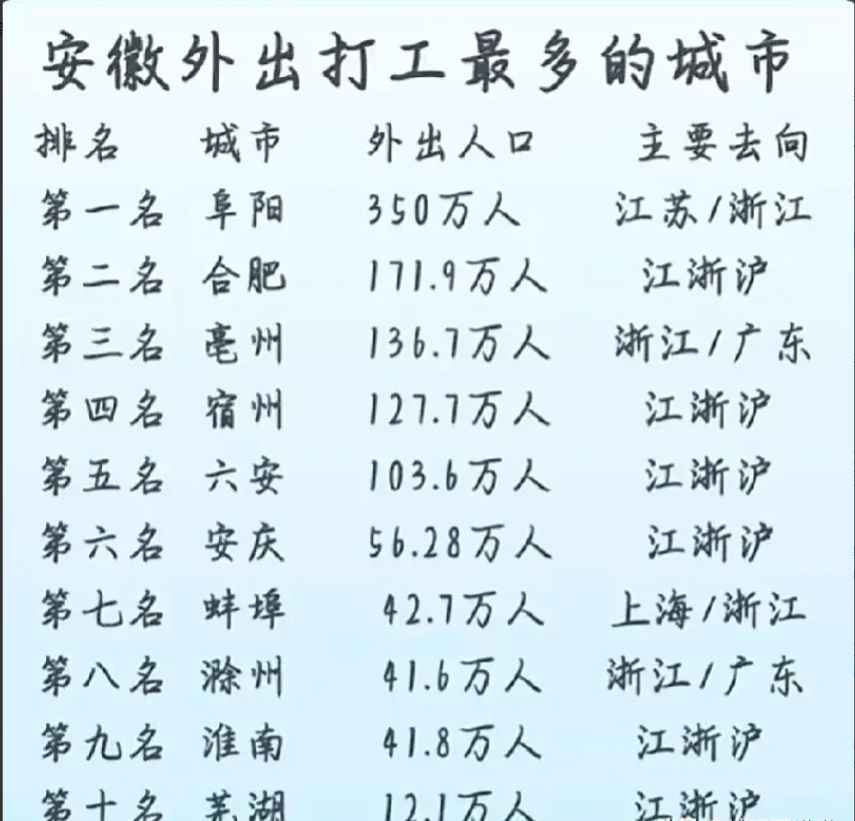 安徽外出打工最多的城市
排名 城市 外出人口 主要去向
第一名 阜阳 350万人 江苏/浙江
第二名 合肥 171.9万人 江浙沪
第三名 亳州 136.7万人 浙江/广东
第四名 宿州 127.7万人 江浙沪
第五名 六安 103.6万人 江浙沪
第六名 安庆 56.28万人 江浙沪
第七名 蚌埠 42.7万人 上海/浙江
第八名 滁州 41.6万人 浙江/广东
第九名 淮南 41.8万人 江浙沪
第十名 芜湖 12.1万人 江浙沪